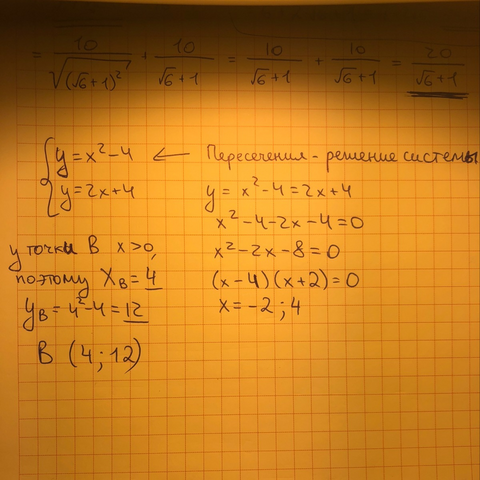 = 10/√(√6+1)² + 10/(√6+1) = 10/(√6+1) + 10/(√6+1) = 20/(√6+1)
{ y = x² - 4 ← Пересечения - решение системы
y = 2x + 4
y = x² - 4 = 2x + 4
x² - 4 - 2x - 4 = 0
x² - 2x - 8 = 0
(x - 4)(x + 2) = 0
x = -2 ; 4
у точки B x > 0,
поэтому X_B = 4
y_B = 4² - 4 = 12
B (4; 12)